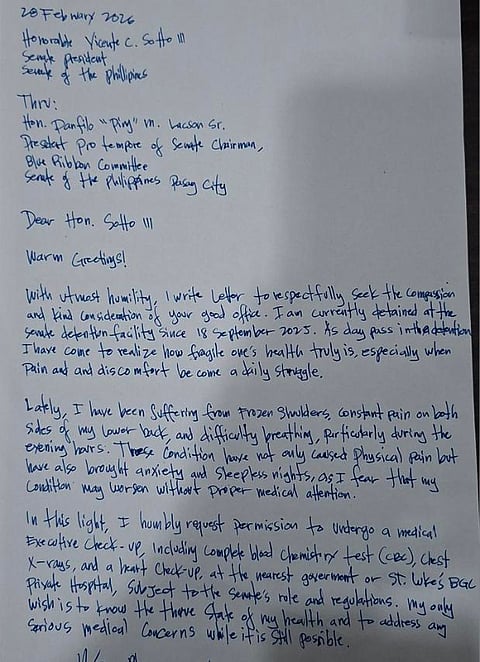 28 February 2026
Honorable Vicente C. Sotto III
Senate president
Senate of the Phillipines
Thru:
Hon. Panfilo "Ping" M. Lacson Sr.
President Pro tempore of Senate Chairman,
Blue Ribbon Committee
Senate of the Philippines Pasay City
Dear Hon. Sotto III
Warm Greetings!
With utmost humility, I write letter to respectfully seek the compassion
and kind consideration of your good office. I am currently detained at the
senate detention facility since 18 September 2025. As day pass in the detention
I have come to realize how fragile one's health truly is, especially when
pain and and discomfort be come a daily struggle.
Lately, I have been suffering from Frozen Shoulders, constant pain on both
sides of my lower back, and difficulty breathing, particularly during the
evening hours. These Condition have not only caused physical pain but
have also brought anxiety and sleepless nights, as I fear that my
Condition may worsen without proper medical attention.
In this light, I humbly request permission to undergo a medical
Executive Check-up, including complete blood Chemistry test (CBC), Chest
X-rays, and a heart Check-up, at the nearest goverment or ST. Luke's BGC
Private Hospital, subject to the Senate's role and regulations. My only
wish is to know the thrve State of my health and to address any
serious medical Concerns while it is still possible.